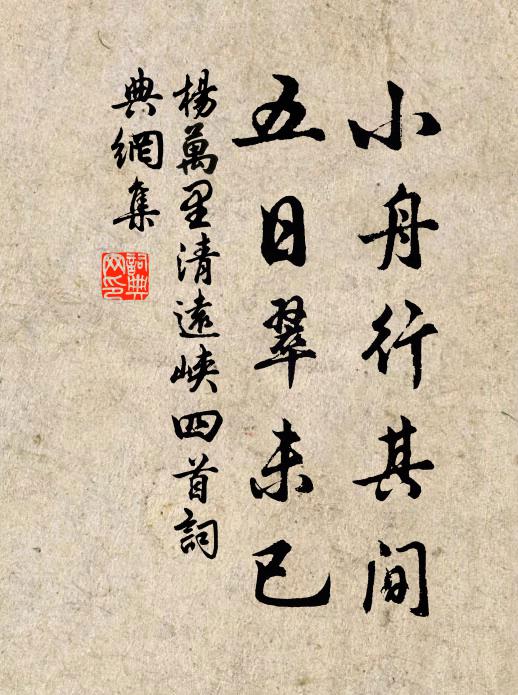 小舟行其間
五日翠未已
楊萬里清遠峽四首詞
典網集
詞典网印